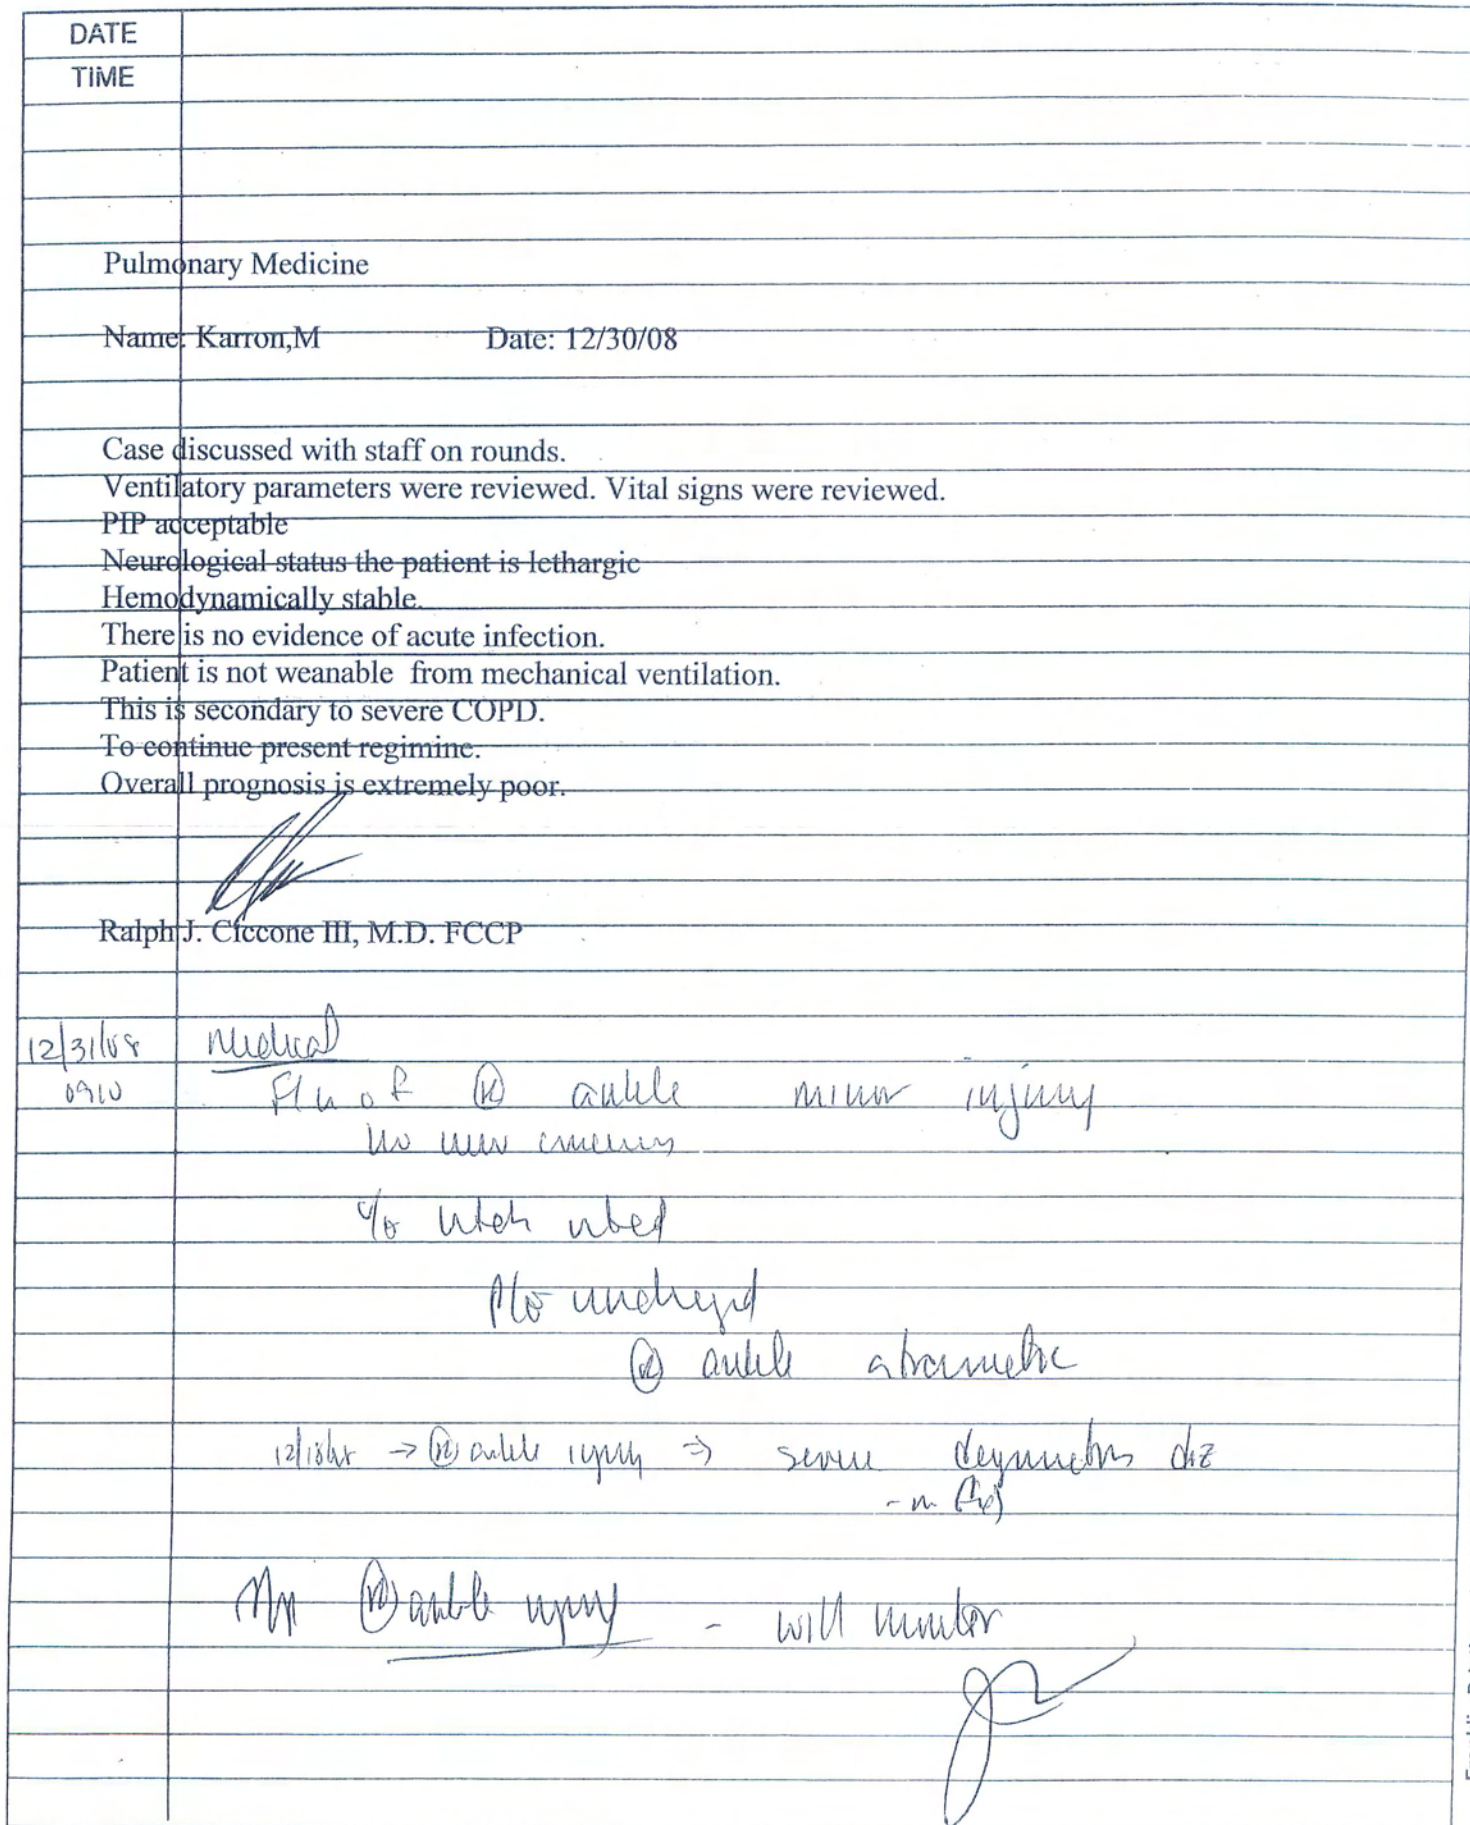 DATE
TIME
Pulmonary Medicine
Name: Karron,M Date: 12/30/08
Case discussed with staff on rounds.
Ventilatory parameters were reviewed. Vital signs were reviewed.
PIP acceptable
Neurological status the patient is lethargic
Hemodynamically stable.
There is no evidence of acute infection.
Patient is not weanable from mechanical ventilation.
This is secondary to severe COPD.
To continue present regimine.
Overall prognosis is extremely poor.
Ralph J. Ciccone III, M.D. FCCP
12/31/08 Medical
0910 F/u of (R) ankle minor injury
no new concerns
(R) ankle atraumatic
→ (R) ankle injury ⇒ severe
(R) ankle injury - will monitor